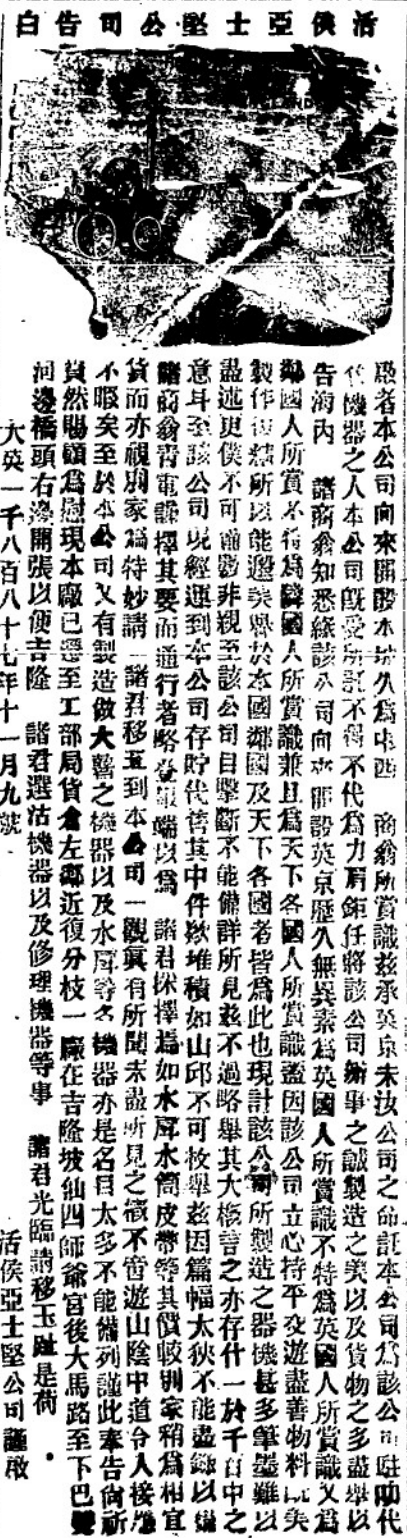 活侯亞士堅公司告白
啟者本公司向來開設本坡久為中西 商翁所賞識茲承英京未汝公司之命託本公司為該公司駐叻代
代機器之人本公司既受所託不得不代為力肩鉅任將該公司辦事之誠製造之美以及貨物之多盡舉以
告海內 諸商翁知悉緣該公司向來開設英京歷久無異素為英國人所賞識不特為英國人所賞識又為
鄰國人所賞不特為鄰國人所賞識兼且為天下各國人所賞識蓋因該公司立心持平交遊盡善物料既美
製作復精所以能邀美譽於本國鄰國及天下各國者皆為此也現計該公司所製造之器機甚多筆墨難以
盡述更僕不可 數非親至該公司目擊斷不能備詳所見茲不過略舉其大概言之亦存什一於千百中之
意耳至該公司現經運到本公司存貯代售其中件欵堆積如山邱不可枚舉茲因篇幅太狹不能盡錄以
諸商翁青電謹擇其要而通行者略登 端以為 諸君採擇焉如水屏水筒皮帶等其價較別家稍為相宜
貨而亦視別家為特妙請 諸君移玉到本公司一觀真有所聞未盡所見之 不啻遊山陰中道令人接應
不暇矣至於本公司又有製造做大 之機器以及水屏等各機器亦是名目太多不能備列謹此奉告尚祈
賁然賜顧為 現本廠已遷至工部局貨倉左鄰近復分枝一廠在吉隆坡仙四師爺宮後大馬路至下巴雙
河邊橋頭右邊開張以便吉隆 諸君選沽機器以及修理機器等事 諸君光臨請移玉趾是荷
大英一千八百八十七年十一月九號
活侯亞士堅公司謹啟